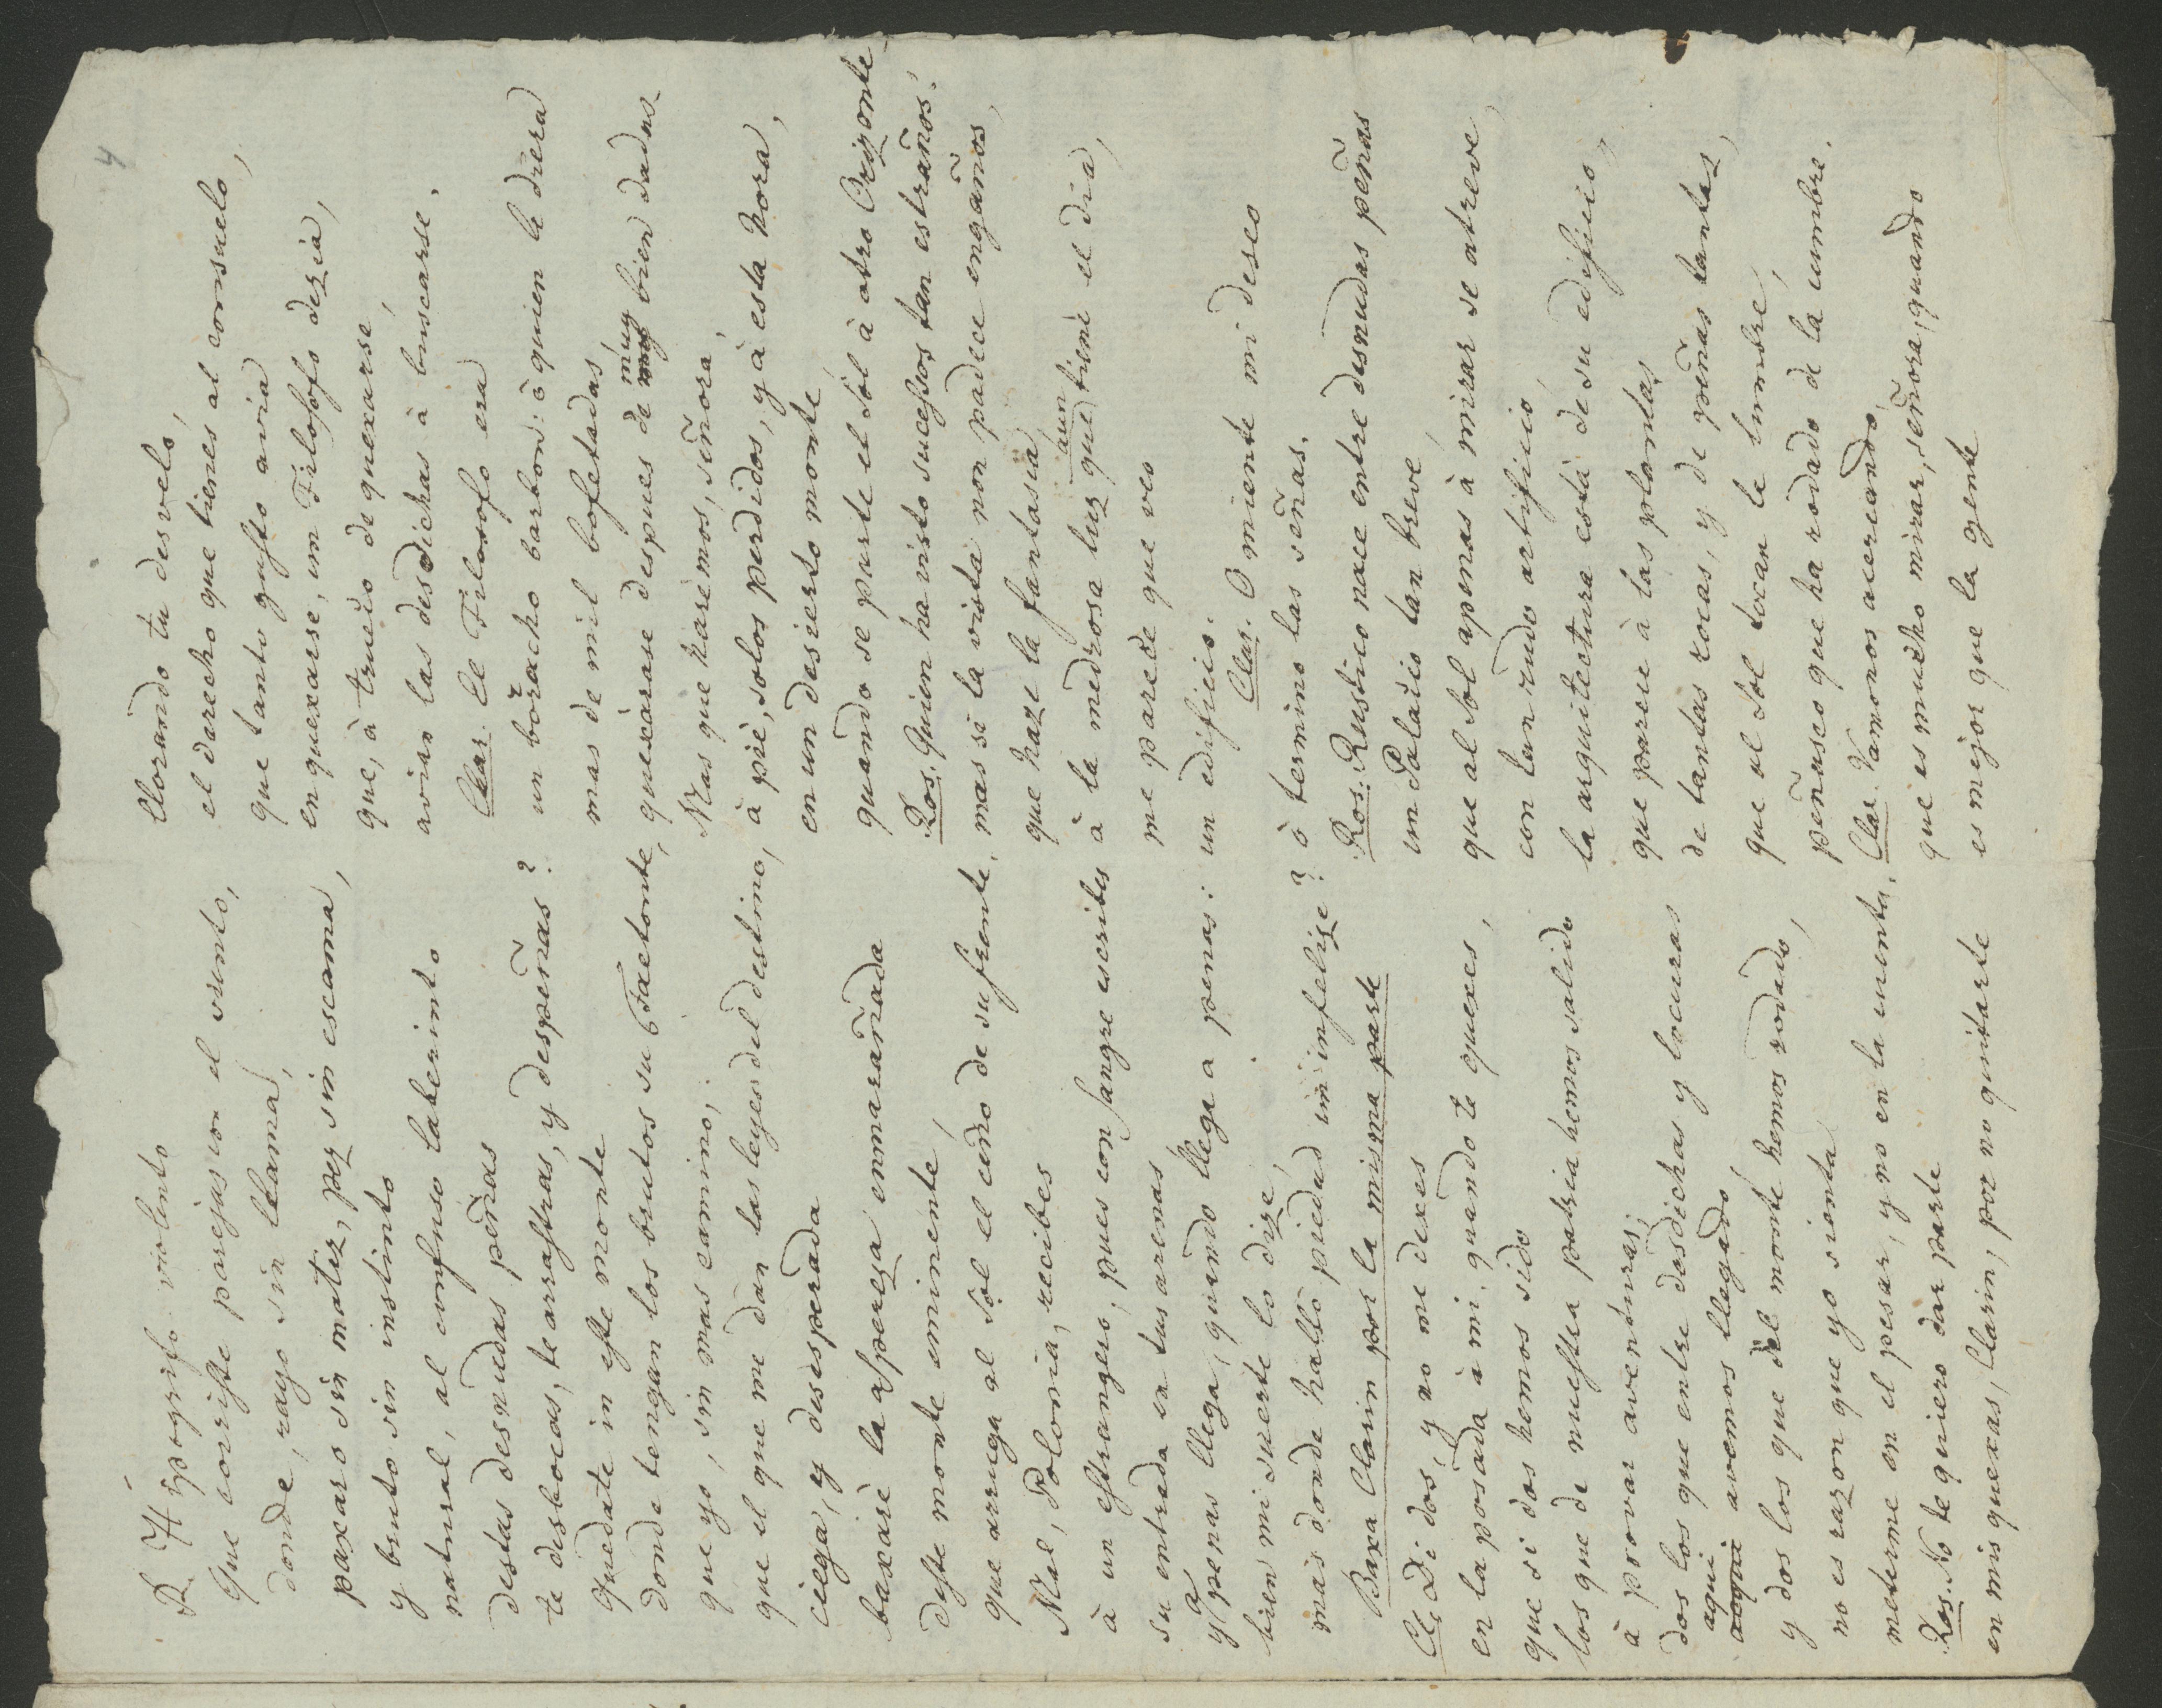 4
R. Hipogrifo violento
Que corriste parejas con el viento,
donde, rayo sin llama,
paxaro sin matiz, pez sin escama,
y bruto sin instinto
natural, al confuso laberinto
destas desnudas peñas
te desbocas, te arrastras, y despeñas?
Quedate in este monte
donde tengan los brutos su Faetonte,
que yo, sin mas camino,
que el que me dàn las leyes del destino,
ciega, y desesperada
baxarè la aspereza enmarañada
deste monte eminente,
que arruga al sol el ceño de su frente.
Mal, Polonia, recibes
à un estrangero, pues con sangre escribes
su entrada en tus arenas
y apenas llega, quando llega a penas:
bien mi suerte lo dize,
mas donde hallò piedad un infelize?
Baxa Clarin por la misma parte
Cl. Di dos, y no me dexes
en la posada à mi, quando te quexes,
que si dos hemos sido
los que de nuestra patria hemos salido
à provar aventuras,
dos los que entre desdichas y locuras
aqui
aoqui avemos llegado,
y dos los que del monte hemos rodado,
no es razon que yo sienta
meterme en el pesar, y no en la cuenta.
Ros. No te quiero dar parte
en mis quexas, Clarin, por no quitarte
llorando tu desvelo,
el darecho que tienes al consuelo,
que tanto gusto avia
en quexarse, un Filosofo dezia,
que, à trueco de quexarse,
avian las desdichas à buscarse.
Clar. El Filosofo era
un borracho barbon: ò quien le diera
mas de mil bofetadas,
muy
quexàrase despues de muy bien dadas
Mas que harèmos, señora,
à piè, solos perdidos, y à esta hora,
en un desierto monte
quando se parte el sol à otro Orizonte
Ros. Quien ha visto sucessos tan estraños!
mas si la vista non padece engaños,
que haze la fantasia,
à la medrosa luz que aun tiene el dia,
me parece que veo
un edificio. Clar. O miente mi deseo
ò termino las señas.
Ros: Rustico nace entre desnudas peñas
un Palacio tan breve,
que al sol apenas à mirar se atreve,
con tan rudo artificio,
la arquitectura està de su edificio,
que parece à las plantas
de tantas rocas, y de peñas tantas,
que al sol tocan le lumbre,
peñasco que ha rodado de la cumbre.
Clar. Vamonos acercando,
que es mucho mirar, señora, quando
es mejor que la gente